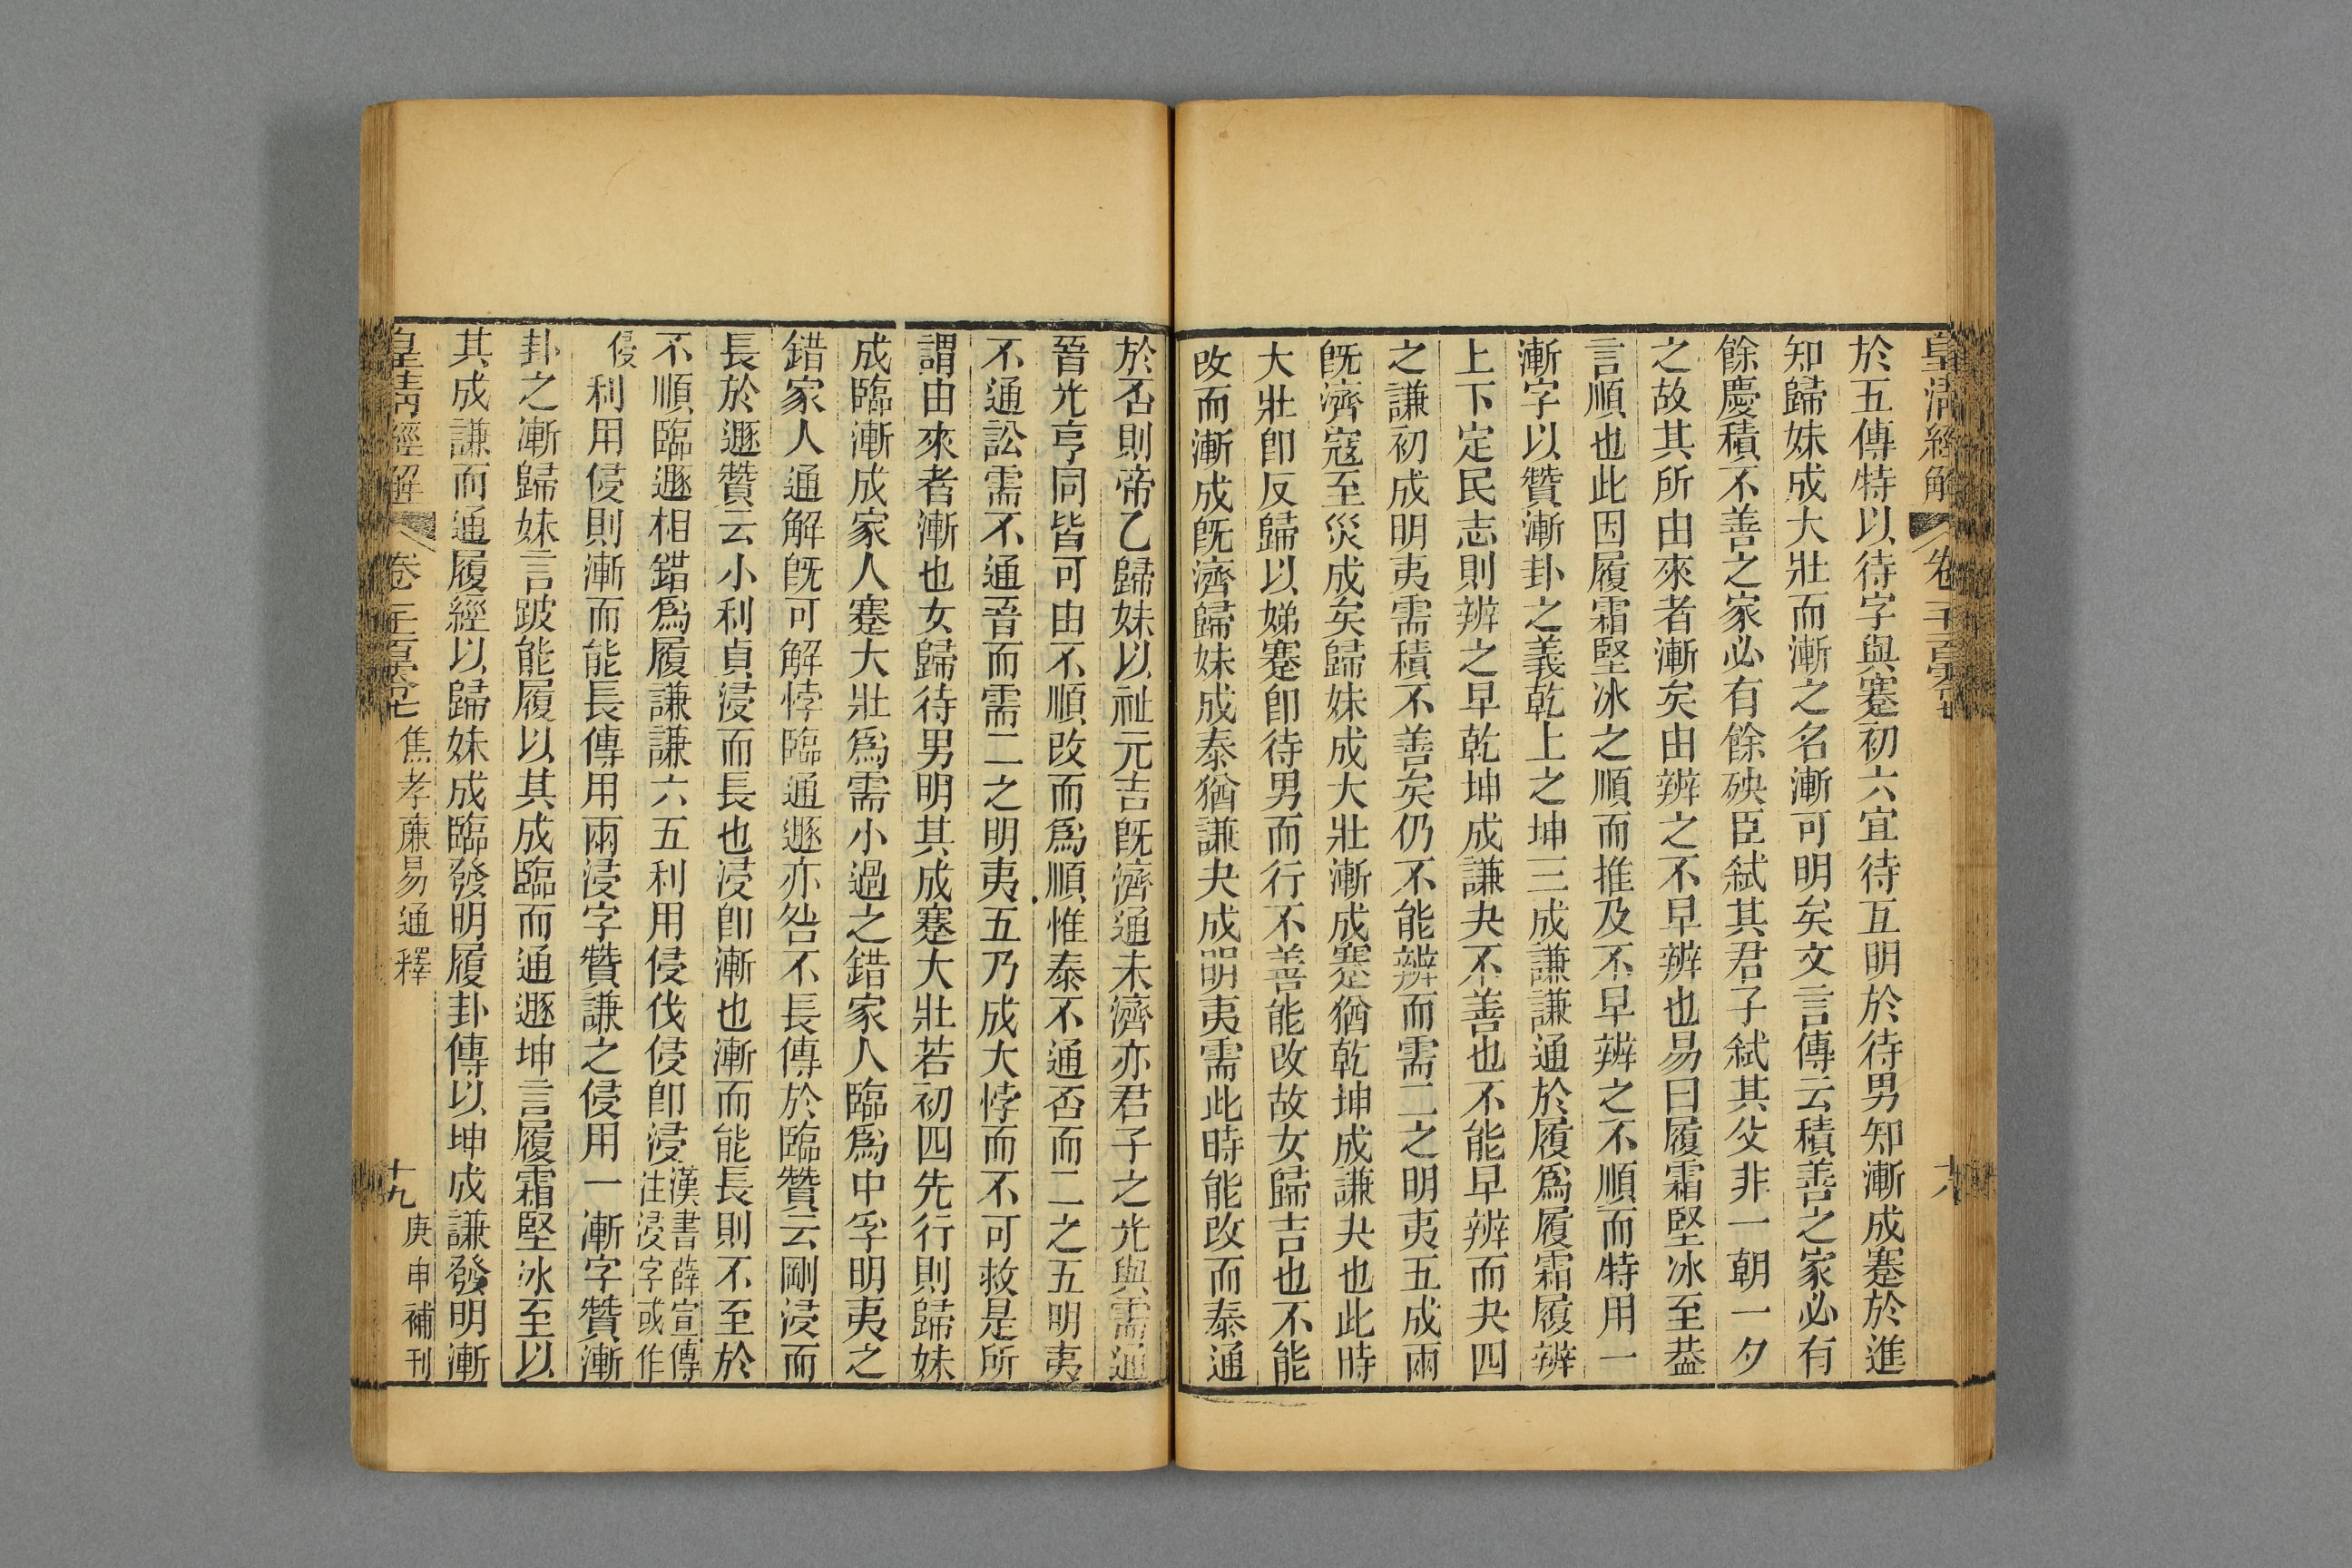 皇清經解
卷一千一百零七
十八
於五傳特以待字與蹇初六宜待互明於待男知漸成蹇於進
知歸妹成大壯而漸之名漸可明矣文言傳云積善之家必有
餘慶積不善之家必有餘殃臣弒其君子弒其父非一朝一夕
之故其所由來者漸矣由辨之不早辨也易曰履霜堅冰至葢
言順也此因履霜堅冰之順而推及不早辨之不順而特用一
漸字以贊漸卦之義乾上之坤三成謙謙通於履爲履霜履辨
上下定民志則辨之早乾坤成謙夬不善也不能早辨而夬四
之謙初成明夷需積不善矣仍不能辨而需二之明夷五成兩
旣濟寇至災成矣歸妹成大壯漸成蹇猶乾坤成謙夬也此時
大壯卽反歸以娣蹇卽待男而行不善能改故女歸吉也不能
改而漸成旣濟歸妹成泰猶謙夬成明夷需此時能改而泰通
於否則帝乙歸妹以祉元吉旣濟通未濟亦君子之光與需通
晉光亨同皆可由不順改而爲順惟泰不通否而二之五明夷
不通訟需不通晉而需二之明夷五乃成大悖而不可救是所
謂由來者漸也女歸待男明其成蹇大壯若初四先行則歸妹
成臨漸成家人蹇大壯爲需小過之錯家人臨爲中孚明夷之
錯家人通解旣可解悖臨通遯亦咎不長傳於臨贊云剛浸而
長於遯贊云小利貞浸而長也浸卽漸也漸而能長則不至於
不順臨遯相錯爲履謙謙六五利用侵伐侵卽浸漢書薛宣傳注浸字或作
侵利用侵則漸而能長傳用兩浸字贊謙之侵用一漸字贊漸
卦之漸歸妹言跛能履以其成臨而通遯坤言履霜堅冰至以
其成謙而通履經以歸妹成臨發明履卦傳以坤成謙發明漸
皇清經解
卷一千一百零七
焦孝廉易通釋
十九
庚申補刊